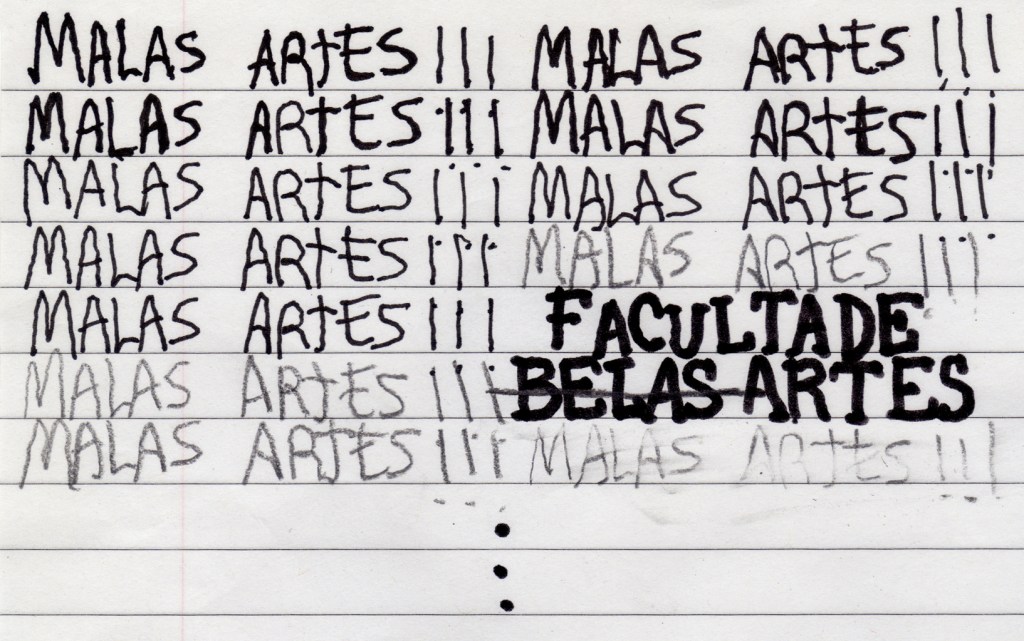 MALAS ARTES!!! MALAS ARTES!!!
MALAS ARTES!!! MALAS ARTES!!!
MALAS ARTES!!! MALAS ARTES!!!
MALAS ARTES!!! MALAS ARTES!!!
MALAS ARTES!!! FACULTADE
MALAS ARTES!!! BELAS ARTES
MALAS ARTES!!! MALAS ARTES!!!